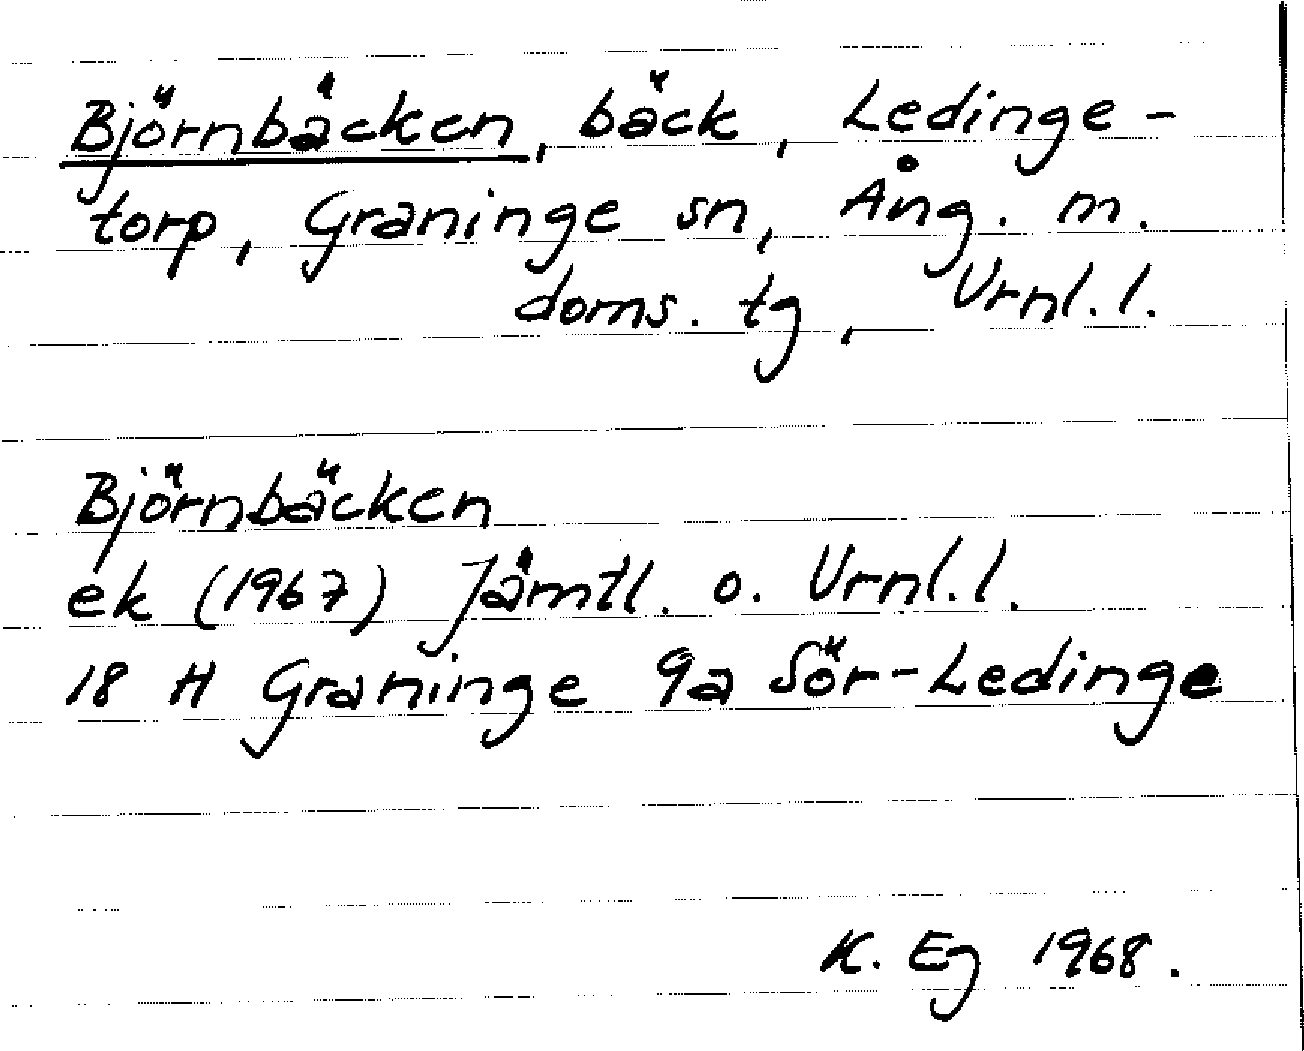 Björnbäcken, bäck, Ledinge-
torp, Graninge sn, Ång. m.
doms. tg, Vrnl. l.
Björnbäcken
ek (1967) Jämtl. o. Vrnl. l.
18 H Graninge 9a Sör-Ledinge
K. Eg 1968.